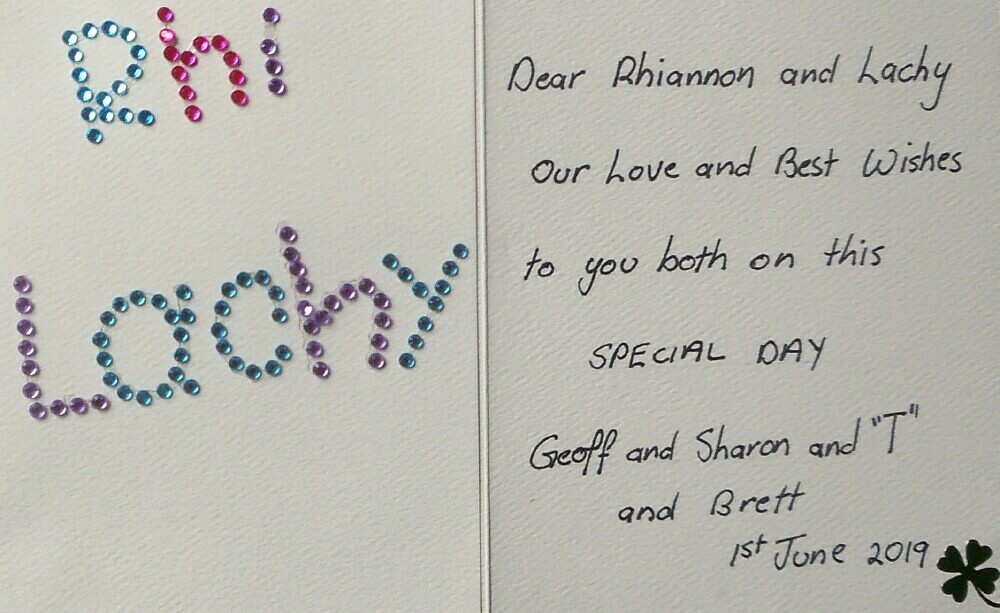 Rhi
Lachy
Dear Rhiannon and Lachy
Our Love and Best Wishes
to you both on this
SPECIAL DAY
Geoff and Sharon and "T"
and Brett
1st June 2019